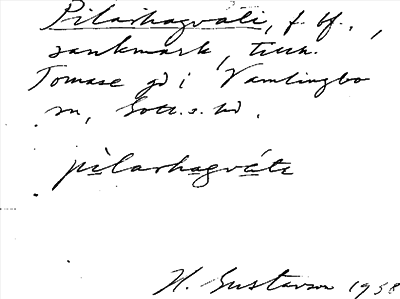 Pilarhagväti, f. bf.,
sankmark, till
Tomase gd i Vamlingbo
sn, Gotl. s. hd.
pilarhagväti
H. Gustavson 1958